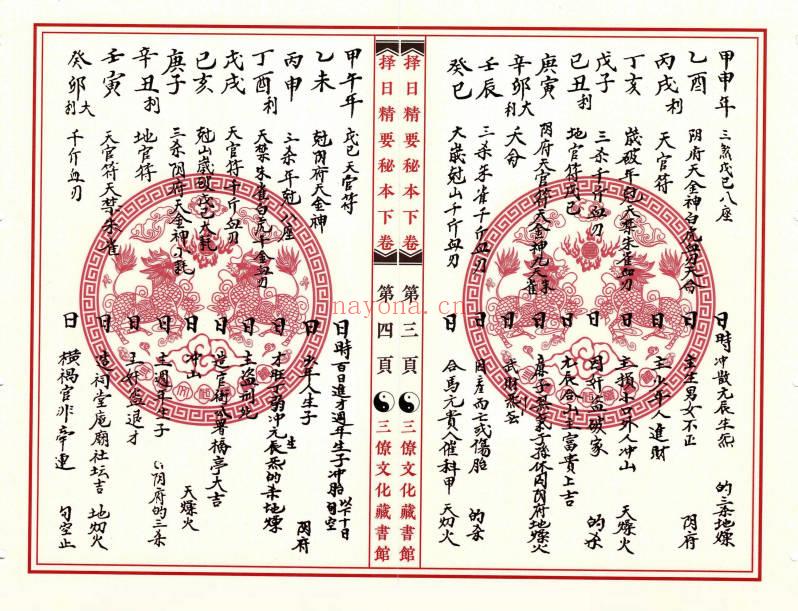 甲申年 三煞戊己八座 日時冲散元辰生炁 的三杀地爍
乙酉 阴府天金神白虎血刃天合 日 主生男女不正 阴府
丙戌利 天官符 日 主少年人進財
丁亥 歲破年尅天禁朱雀血刃 日 主損小口外人冲山 天爍火
戊子 三杀千斤血刃 日 因奸盗破家 的杀
己丑利 地官符戊己 日 元辰合山主富貴上吉
庚寅 阴府天官符天金神九天朱雀 日
辛卯大利 天合 日 武財
壬辰 三杀朱雀千斤血刃 日 因產而亡或傷胎 的杀
癸巳 大歲尅山千斤血刃 日 合馬元貴人催科甲 天灱火
择日精要秘本下卷 第三頁 三僚文化藏書館
择日精要秘本下卷 第四頁 三僚文化藏書館
甲午年 戊己天官符 日時百日進才週年生子冲胎
乙未 尅阴府天金神 日 少年人生子 阴府
丙申 三杀年尅八座 日
丁酉利 天禁朱雀白虎千金血刃 日 才旺丁弱冲元辰生炁的杀地爍
戊戌 天官符千斤血刃 日 造官衙公署橋亭大吉
己亥 尅山歲破戊己大耗 日 冲山 天爍火
庚子 三杀阴府天金神小耗 日 主週年生子 阴府的三杀
辛丑利 地官符 日 主奸盗退才
壬寅 天官符天禁朱雀 日 造祠堂庵廟社坛吉 地灱火
癸卯大利 千斤血刃 日 横禍官非 句空止
nayona.cn